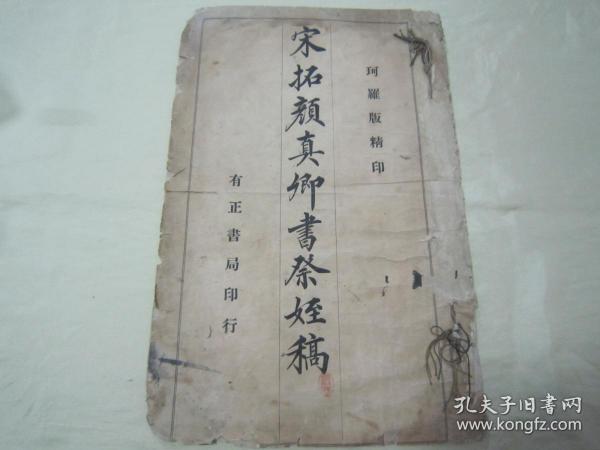 珂羅版精印
宋拓顏真卿書祭姪稿
有正書局印行
孔夫子旧书网
www.kongfz.com